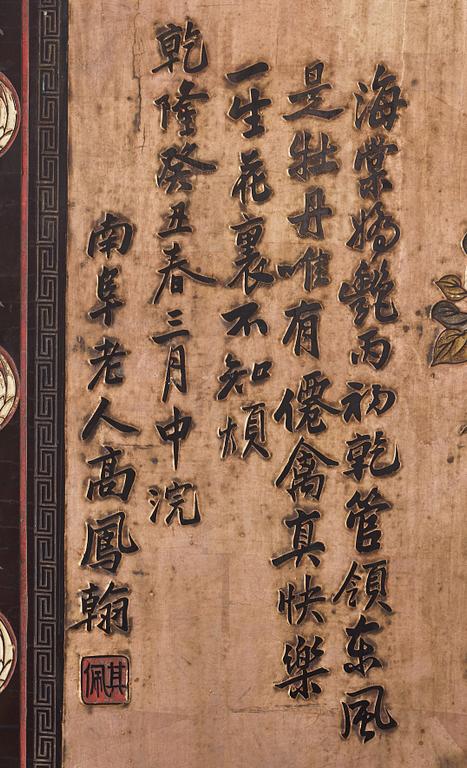 海棠嬌艷雨初乾管領东風
是牡丹唯有僊禽真快樂
一生花裏不知煩
乾隆癸丑春三月中浣
南阜老人高鳳翰
其佩